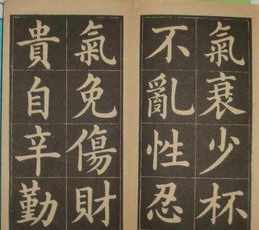 氣衰少杯
不亂性忍
氣免傷財
貴自辛勤